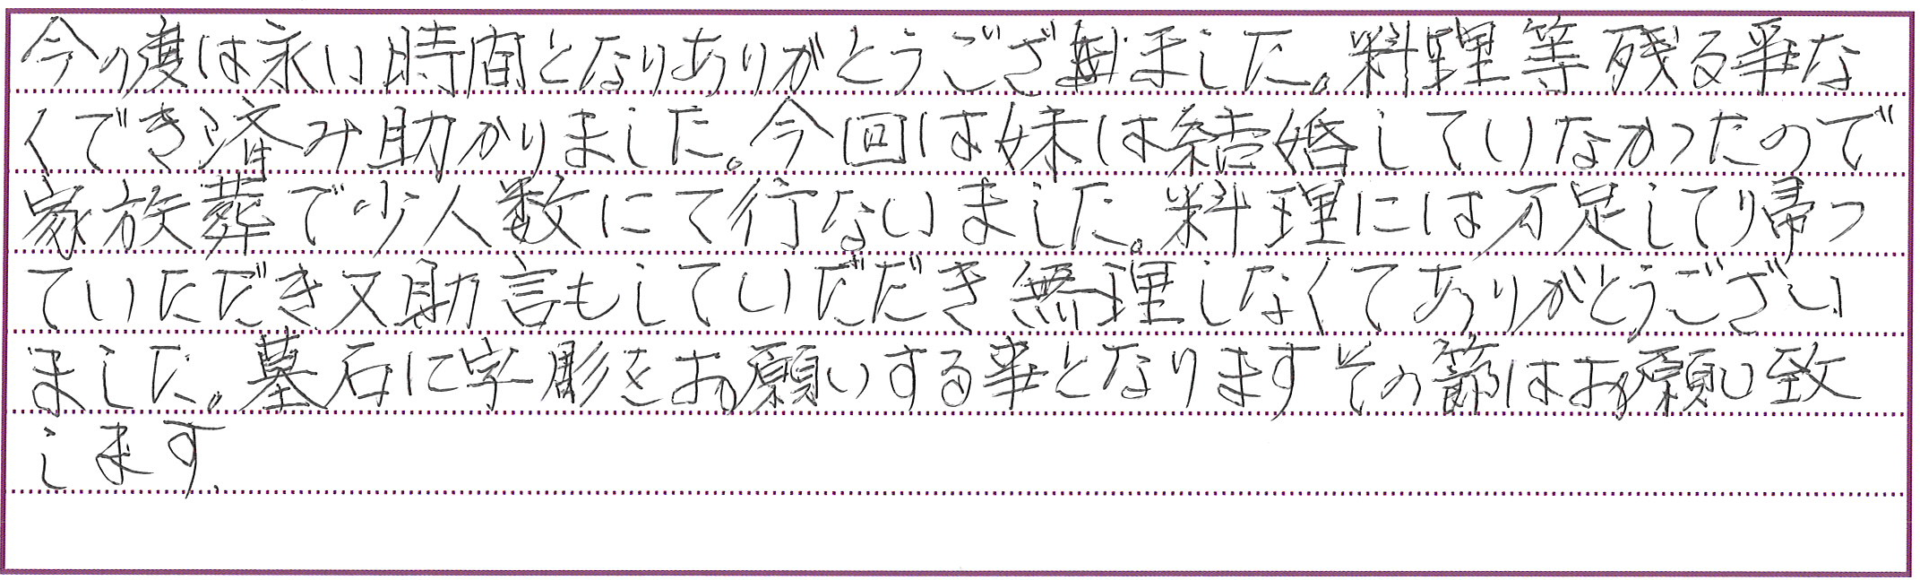 今の度は永い時間となりありがとうございました。料理等残る事な
くでき済み助かりました。今回は妹は結婚していなかったので
家族葬で少人数にて行ないました。料理には不足してり帰っ
ていただき又助言もしていただき無理しなくてありがとうござい
ました。墓石に字彫をお願いする事となりますその節はお願い致
します.